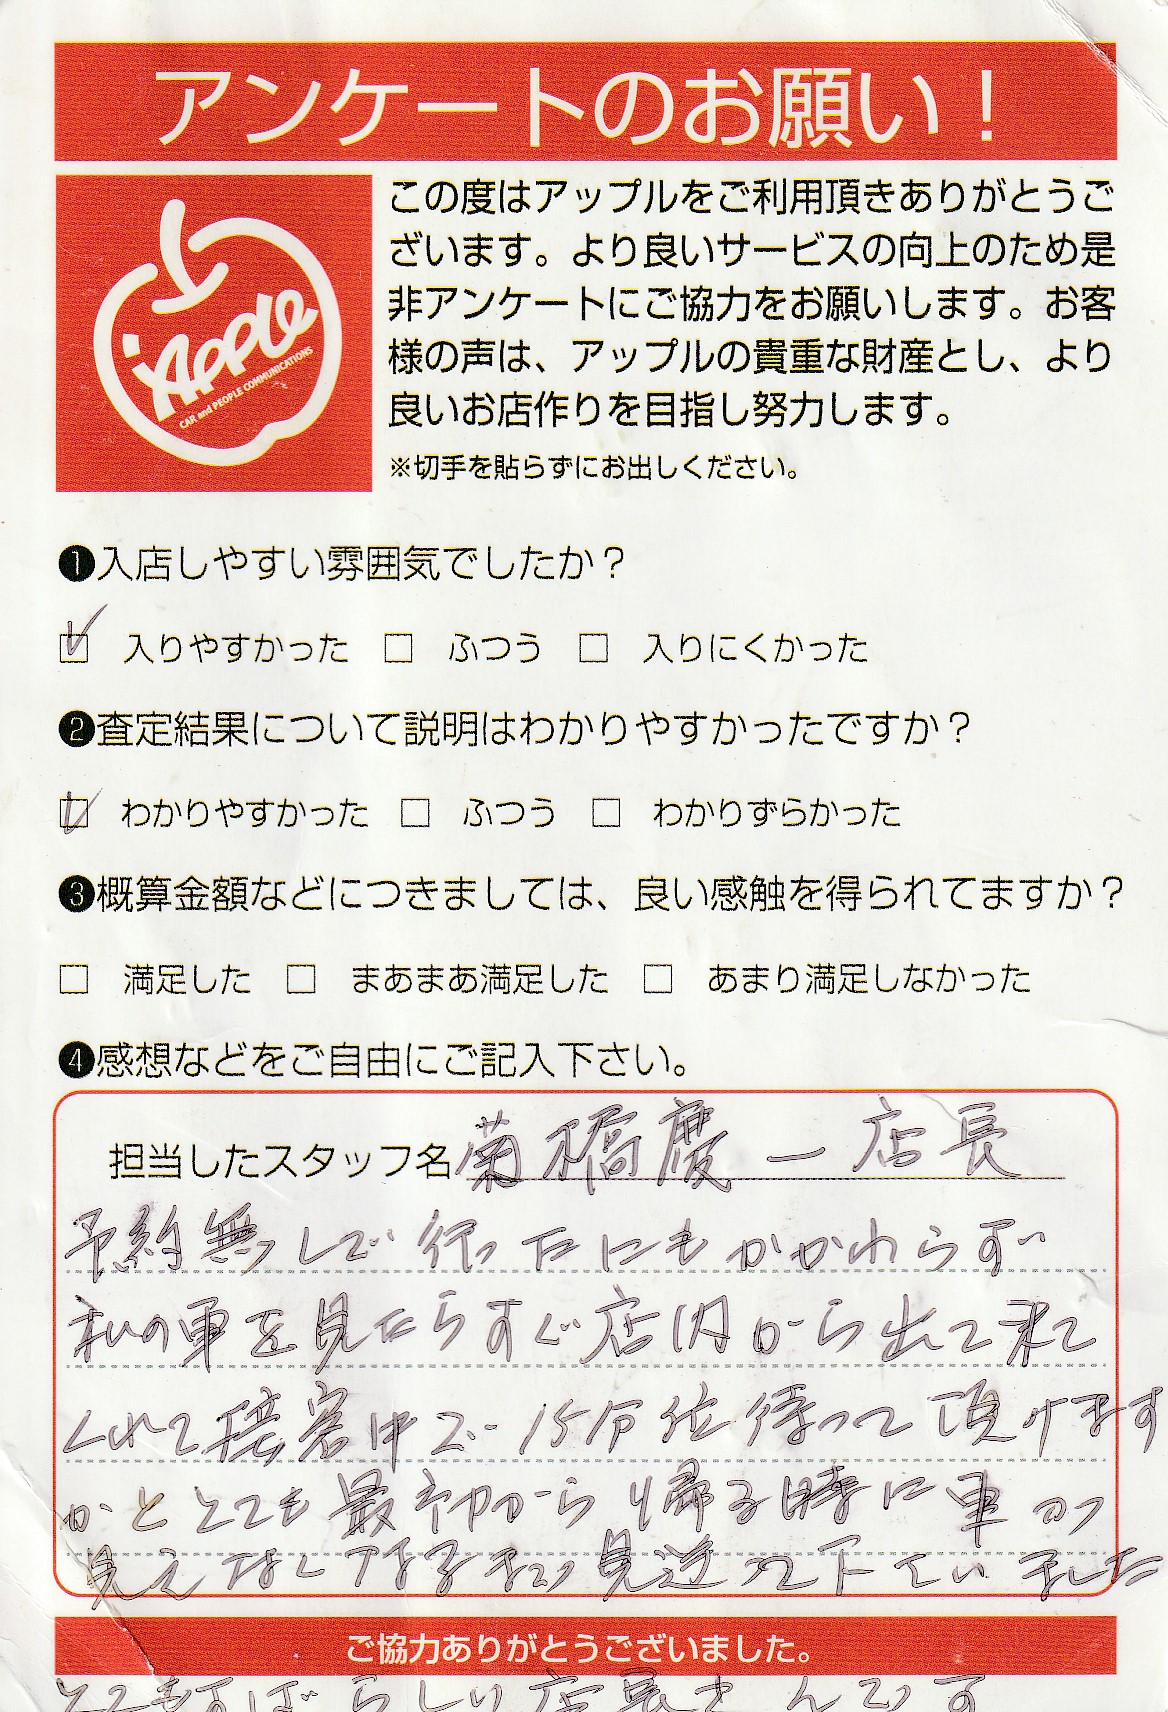 アンケートのお願い！
Apple
CAR and PEOPLE COMMUNICATIONS
この度はアップルをご利用頂きありがとうご
ざいます。より良いサービスの向上のため是
非アンケートにご協力をお願いします。お客
様の声は、アップルの貴重な財産とし、より
良いお店作りを目指し努力します。
※切手を貼らずにお出しください。
❶入店しやすい雰囲気でしたか？
☑ 入りやすかった □ ふつう □ 入りにくかった
❷査定結果について説明はわかりやすかったですか？
☑ わかりやすかった □ ふつう □ わかりずらかった
❸概算金額などにつきましては、良い感触を得られてますか？
□ 満足した □ まあまあ満足した □ あまり満足しなかった
❹感想などをご自由にご記入下さい。
担当したスタッフ名 菊橋慶一店長
予約無しで行ったにもかかわらず
私の車を見たらすぐ店内から出て来て
くれて接客中で15分位待って頂けます
かととても最初から帰る時に車が
見えなくなるまで見送って下さいました
ご協力ありがとうございました。
とてもすばらしい店長さんです